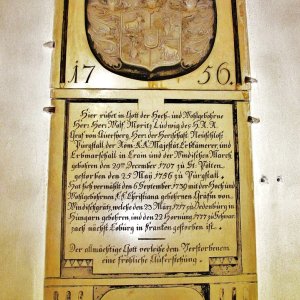 1756.
Hier ruhet in Gott der Hoch- und Wohlgebohrne
Herr Herr Wolf Moritz Ludwig des H. R. R.
Graf von Auersberg Herr der Herrschaft
Purgstall der Rom. K. K. Majestät Erbkämerer, und
Erbmarschall in Crain und der Windischen March
gebohren den 29ten December 1707 zu St. Pölten
gestorben den 25 May 1756 zu Purgstall.
Hat sich vermählt den 6 September 1739 mit der Hoch und
Wohlgebohrnen Gräfin von
Windischgrätz, welche den 23 März 1717 zu Oedenburg in
Hungarn gebohren, und den 22 Hornung 1777 zu
nächst Coburg in Franken gestorben ist.
Der allmächtige Gott verleihe dem Verstorbenem
eine fröhliche Auferstehung.